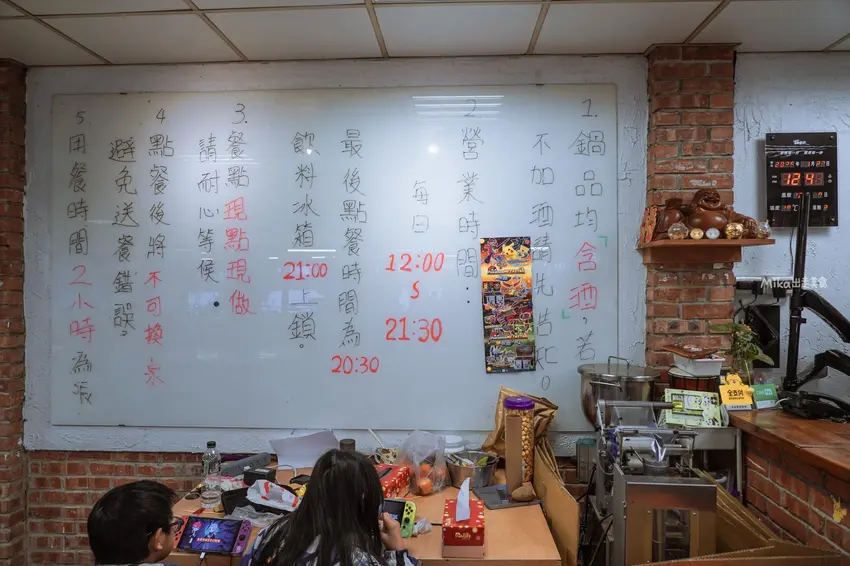 1. 鍋品均「含酒」,若
不加酒請先告知。
2. 營業時間:
每日
12:00
S
21:30
最後點餐時間為
20:30
飲料冰箱21:00上鎖。
3. 餐點現點現做
請耐心等候
4. 點餐後將不可換桌
避免送餐錯誤。
5. 用餐時間2小時為限
2025
Mika出走美食
全支付